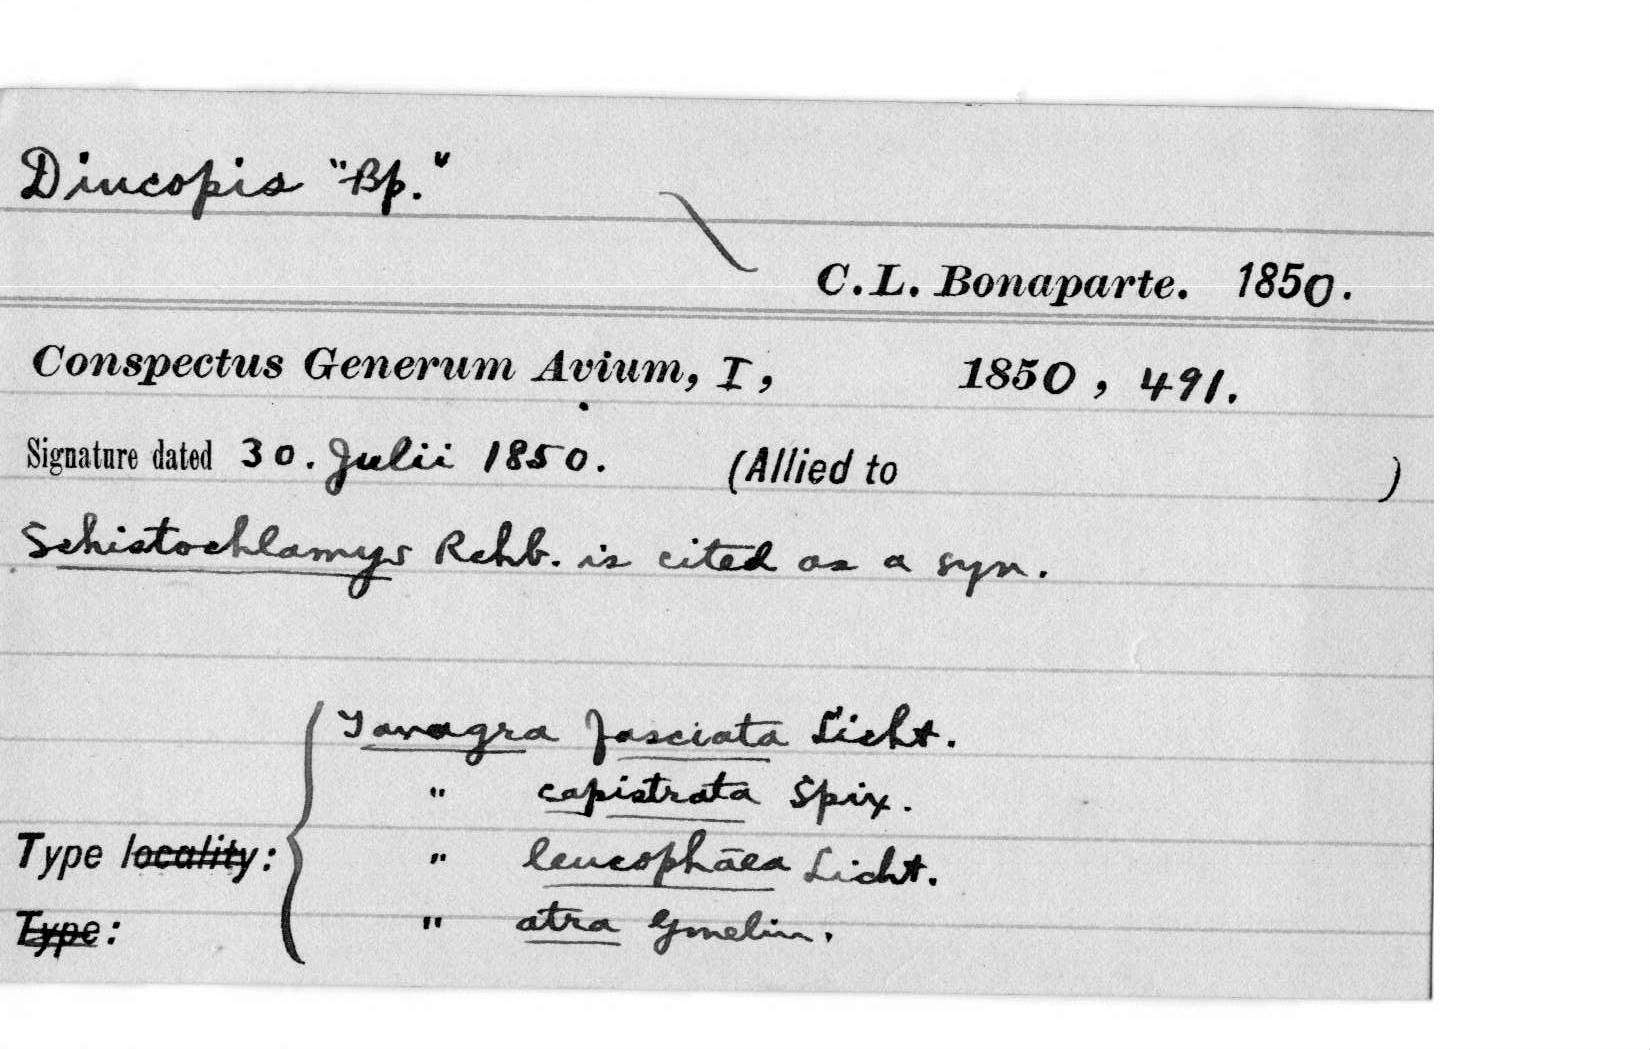 Diucopis "Bp."
C. L. Bonaparte. 1850.
Conspectus Generum Avium, I, 1850, 491.
Signature dated 30. Julii 1850. (Allied to )
Schistochlamys Rchb. is cited as a syn.
Tanagra fasciata Licht.
" capistrata Spix.
Type locality: " leucophaea Licht.
Type: " atra Gmelin.